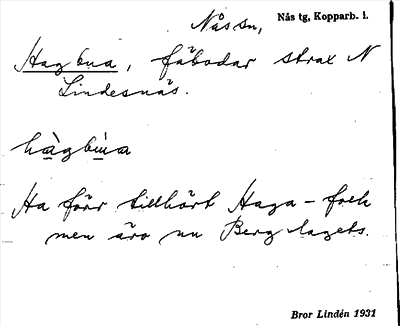 Nås sn, Nås tg, Kopparb. l.
Hagbua, fäbodar strax N
Lindesnäs.
hàgbùa
Ha förr tillhört Haga-folk
men äro nu Bergslagets.
Bror Lindén 1931